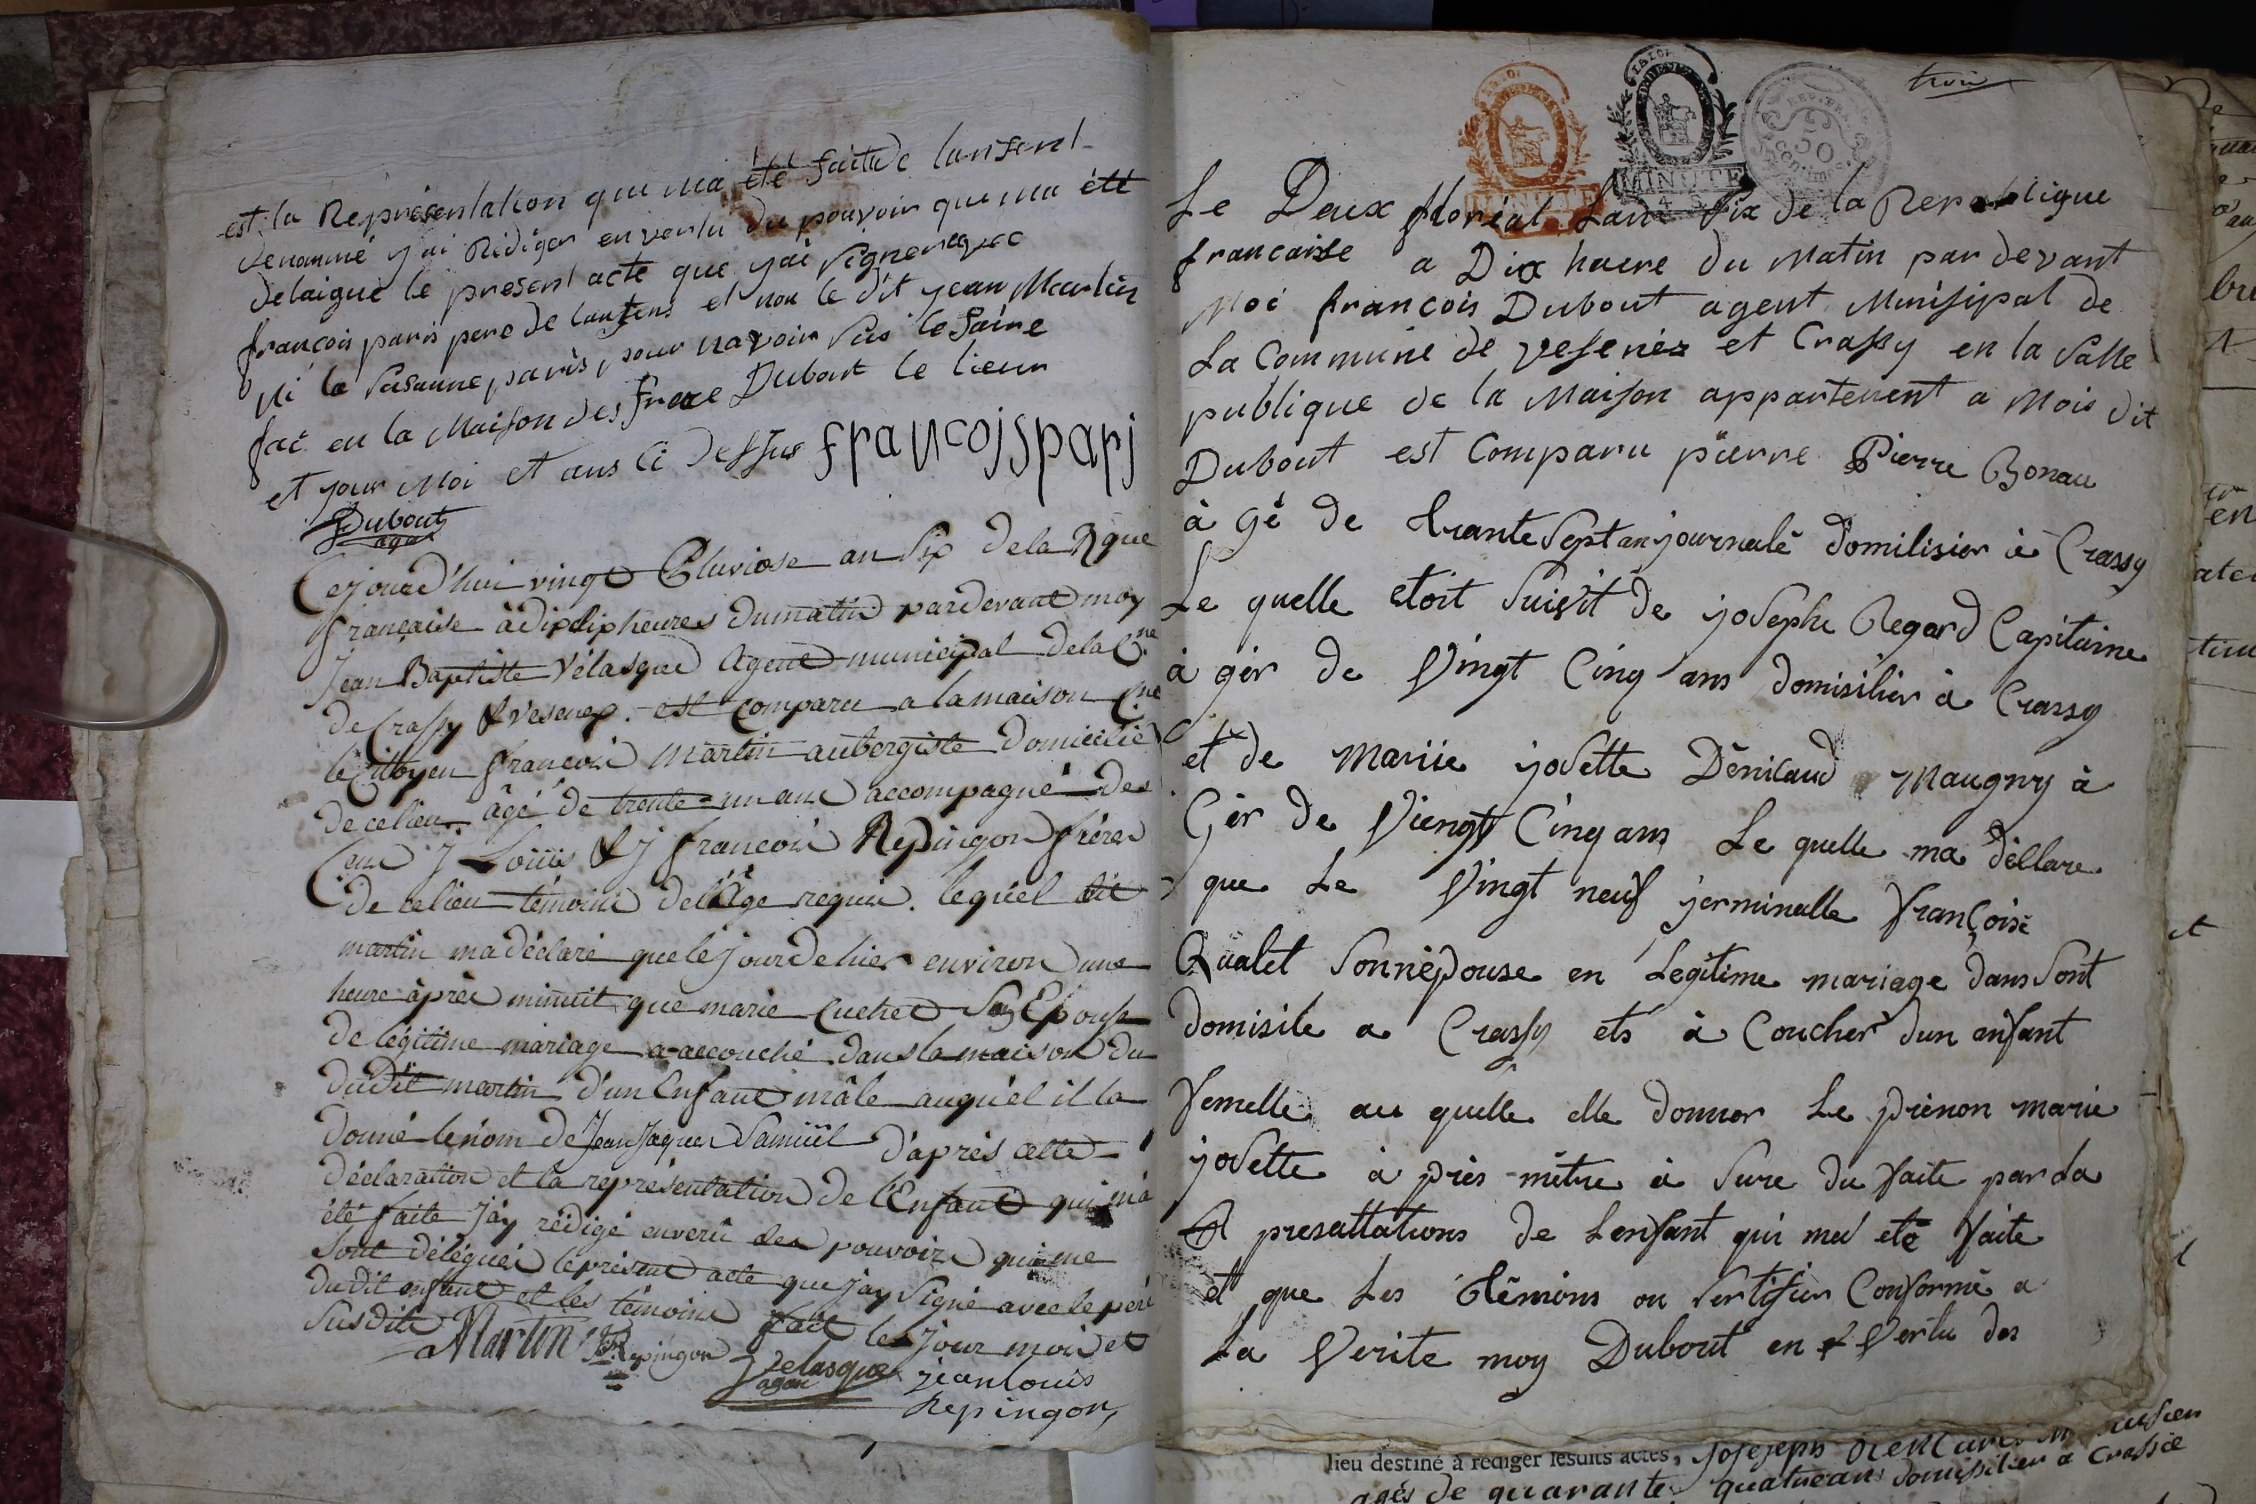 est la Représentation qui ma été faite de lanfent
denommé y ai Rédiger en vertu du pouvoir que ma été
delaigué le present acte que y'ai signer avec
françois paris pere de lanfens et non le dit jean Martin
Ni la susanne paris, pour navoir sus le faire
fai en la Maison des frere Dubout le lieur
et jour Moi et ans ci dessus francojsparj
Dubout
agat
Cejourd'hui vingt Pluviose an Six de la Rque
française à dix heures du matin pardevant moy
Jean Baptiste Vélasque Agent municipal de la Cne
de Crassy & Vesenex. est comparu a la maison Cne
le Citoyen françois Martin aubergiste domicilié
de ce lieu âgé de trente-un ans accompagné des
Cens J Loüis & J françois Repingon frères
de ce lieu témoins de l'Age requis. lequel dit
martin ma déclaré que le jour de hier environ une
heure après minuit que marie Cuchet Son Epouse
de légitime mariage a accouché dans la maison du
du Dit martin d'un Enfant mâle auquel il la
donné le nom de Jean Jaques Samüel d'après cette
déclaration et la représentation de l'Enfant qui m'a
été faite J'ay rédigé en vertu des pouvoirs qui me
sont délégués le présent acte que j'ay Signé avec le père
du dit enfant et les témoins fait les jour mois et
susdits Martin Repingon
Velasque jean louis
agent
Repingon,
trois
LA LOI
MINUTE
REP. FRA.
50
centimes
Le Deux floréal Lant Six de la Republique
francaise a Dix heure du Matin par devant
Moi françois Dubout agent Munisipal de
La Commune de Vesenéz et Crassy en la Salle
publique de la Maison appartenent a Mois dit
Dubout est Comparu pierre Pierre Bonau
à gé de trante Sept an journalé domilisier à Crassy
Le quelle etoit Suivit de joseph Regard Capitaine
à gér de Vingt Cinq ans domisilier à Crassy
et de Mariie josette Dénicaud Maugny à
Gér de Viengt Cinq ans Le quelle ma déllare
que Le Vingt neuf jerminalle françoise
Qualet Sonnépouse en Legitime mariage dans Sont
domisile a Crassy ets à Coucher dun anfant
femelle au quelle elle donner Le prénon marie
josette à près mêtre à Sure du faite par La
R presattations de Lenfant qui ma eté faite
et que Les témions on Sertifier Conformé a
La Verite moy Dubout en Vertu des
lieu destiné à rédiger lesdits actes,
agés de quarante quatre ans domisilier a Crassie